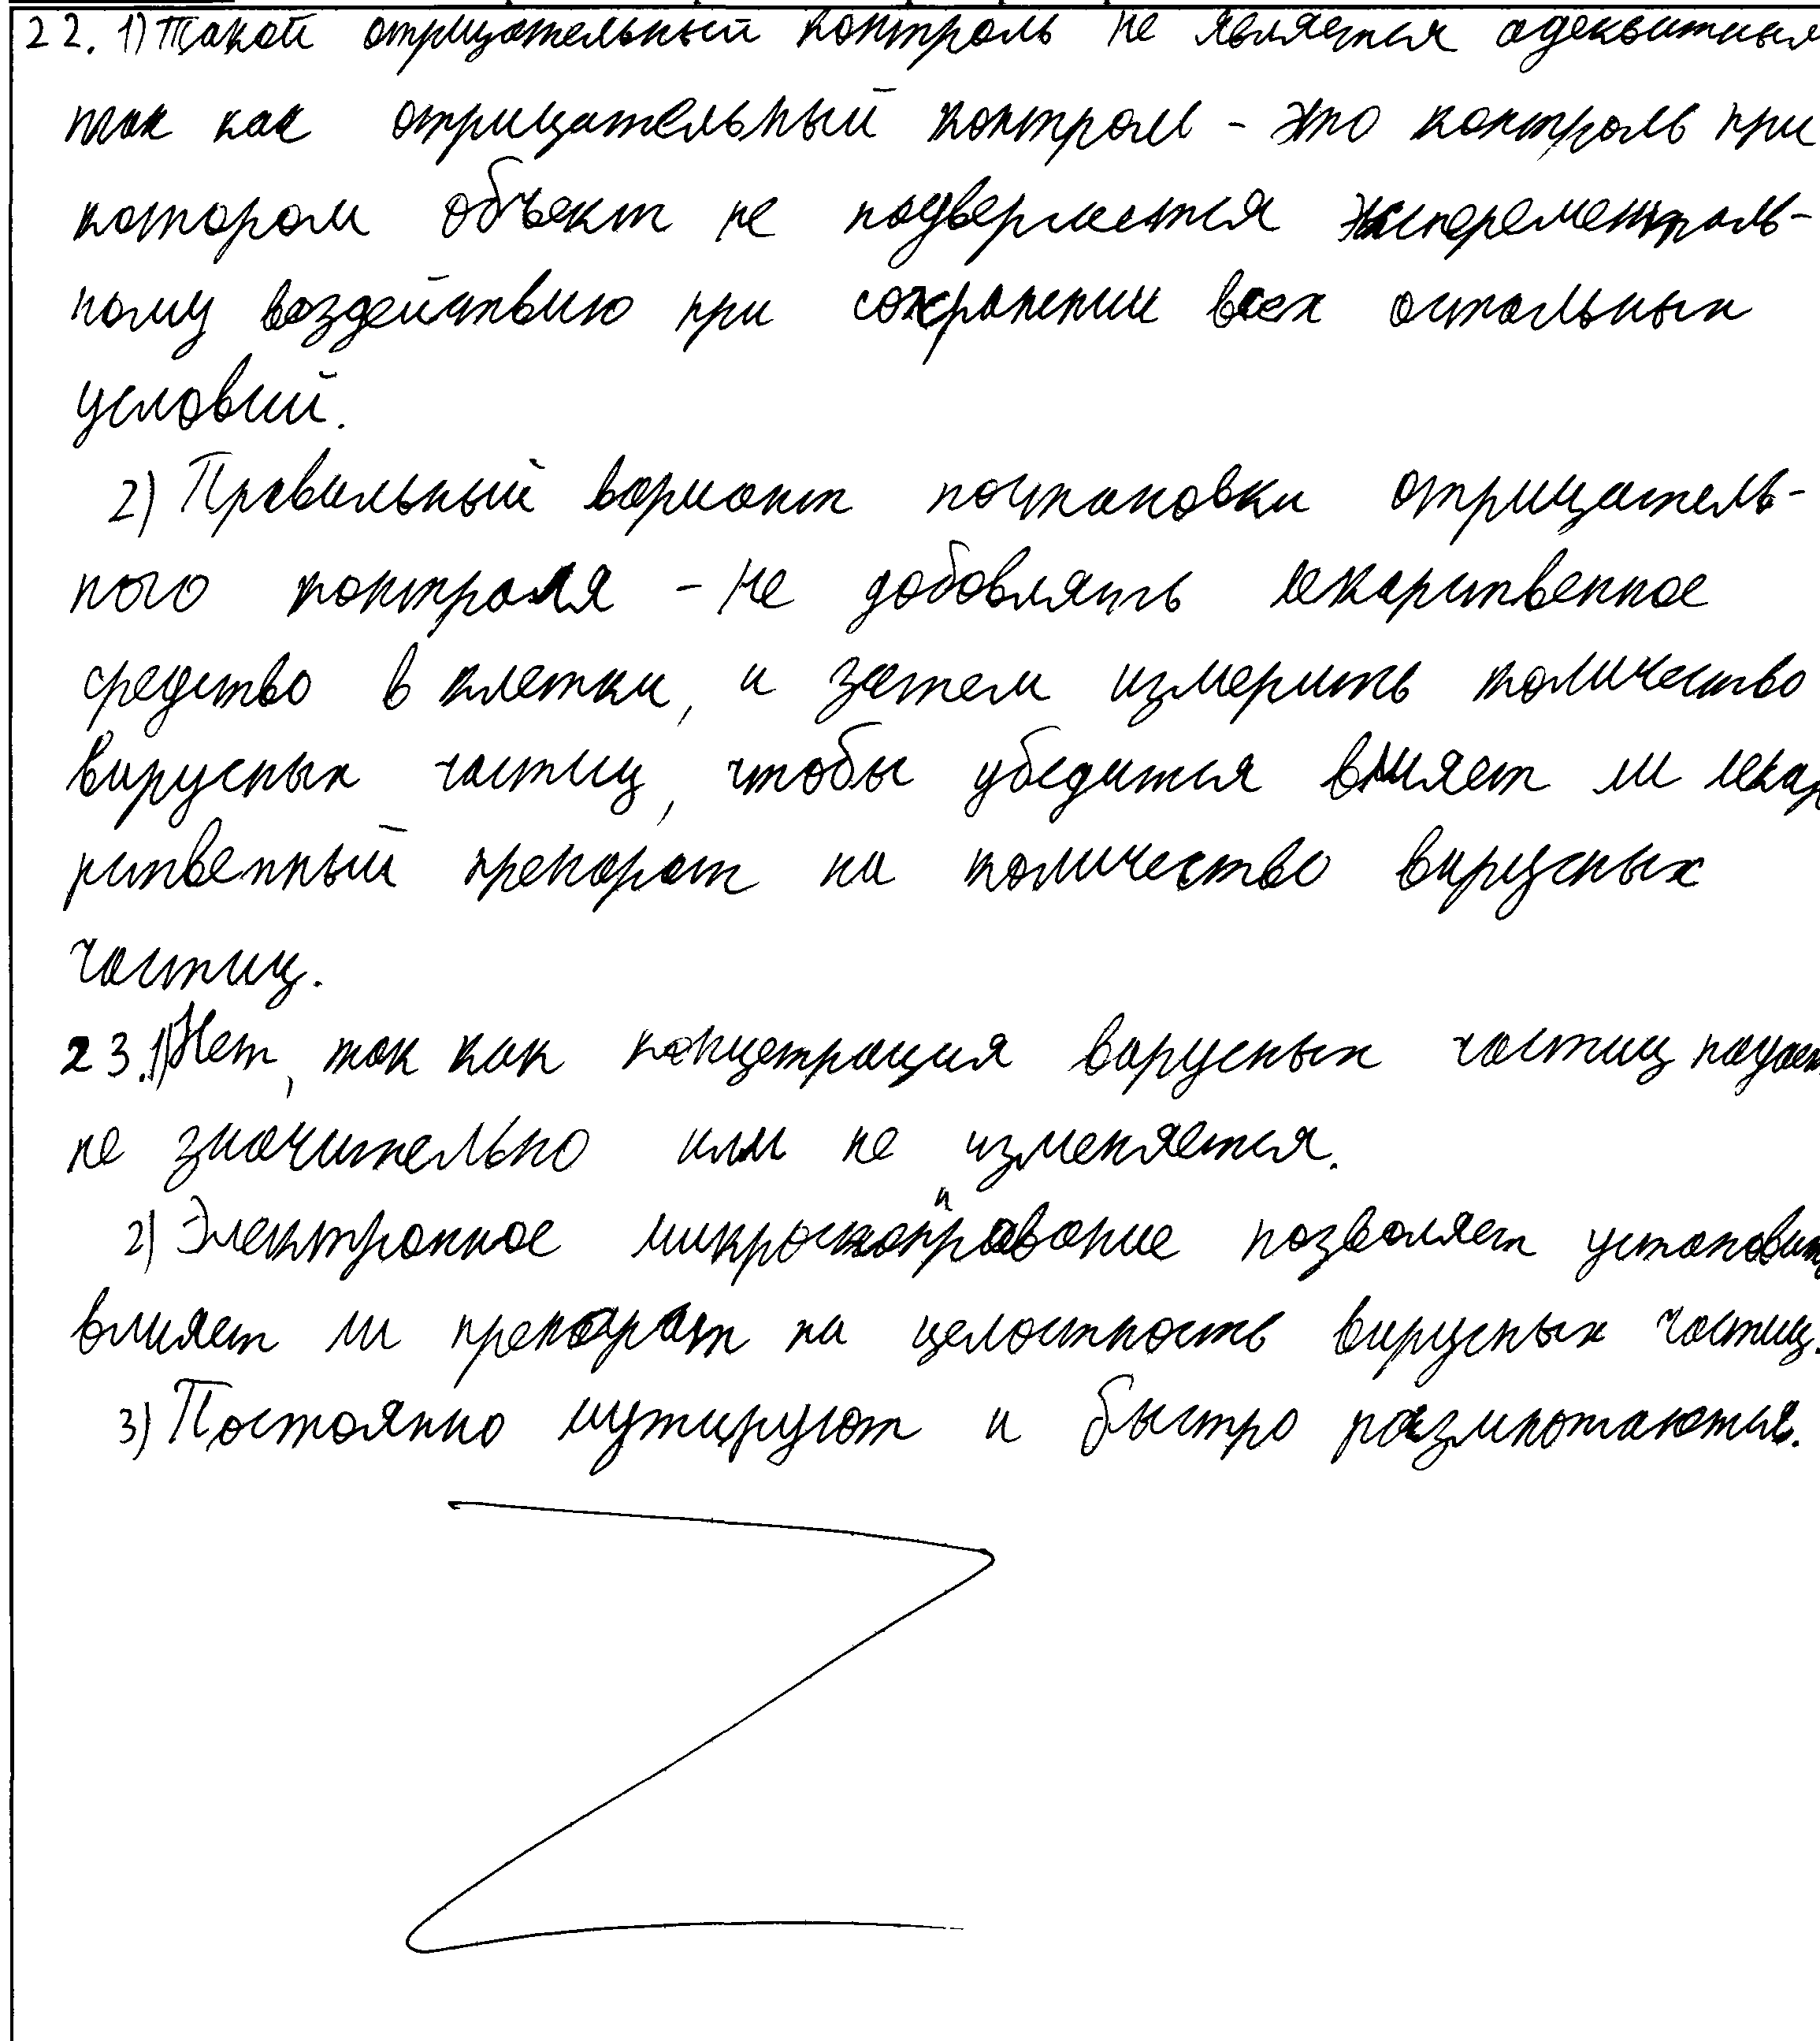 22. 1) Такой отрицательный контроль не является адекватным
так как отрицательный контроль - это контроль при
котором объект не подвергается эксперементаль-
ному воздействию при сохранении всех остальных
условий.
2) Правильный вариант постановки отрицатель-
ного контроля - не добавлять лекарственное
средство в клетки, и затем измерить количество
вирусных частиц, чтобы убедится влияет ли лекар
ственный препарат на количество вирусных
частиц.
23. 1) Нет, так как концетрация вирусных частиц падает
не значительно или не изменяется.
2) Электронное микроскопирование позволяет установить
влияет ли препарат на целостность вирусных частиц.
3) Постоянно мутируют и быстро размножаются.